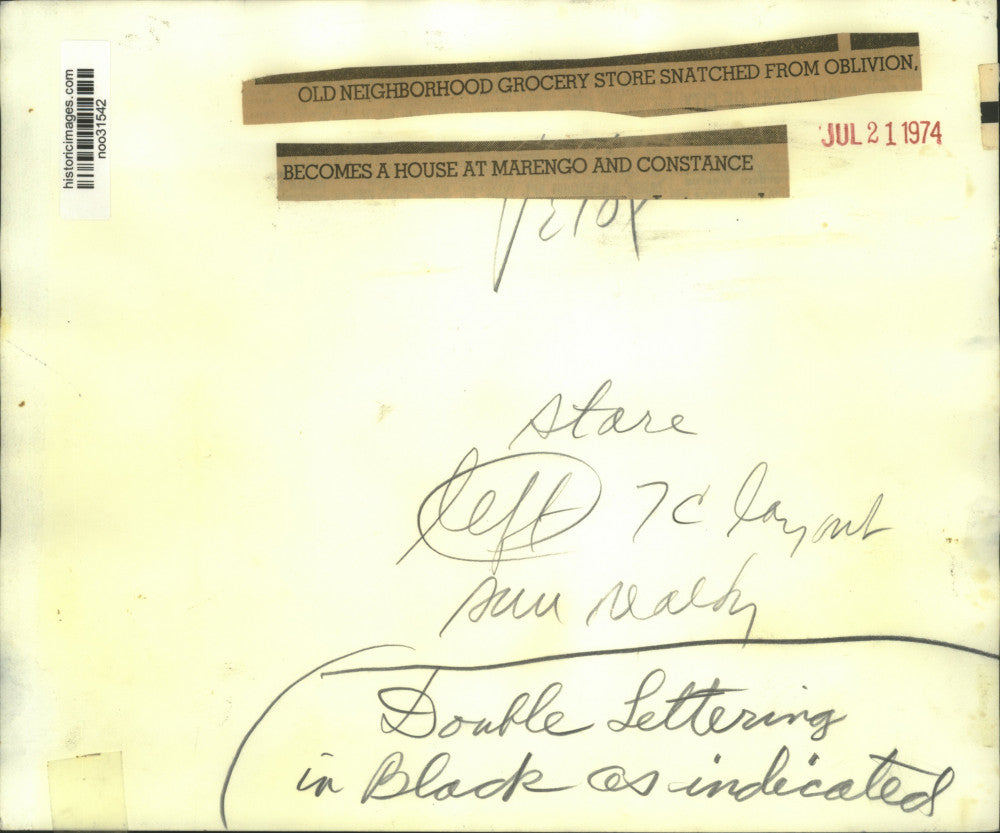 historicimages.com
noo31542
OLD NEIGHBORHOOD GROCERY STORE SNATCHED FROM OBLIVION,
JUL 21 1974
BECOMES A HOUSE AT MARENGO AND CONSTANCE
store
left 7c layout
sun realty
Double Lettering
in Black as indicated